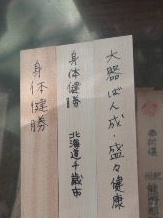 大器ばん成・盛々健康
身体健勝 北海道千歳市
身体健勝